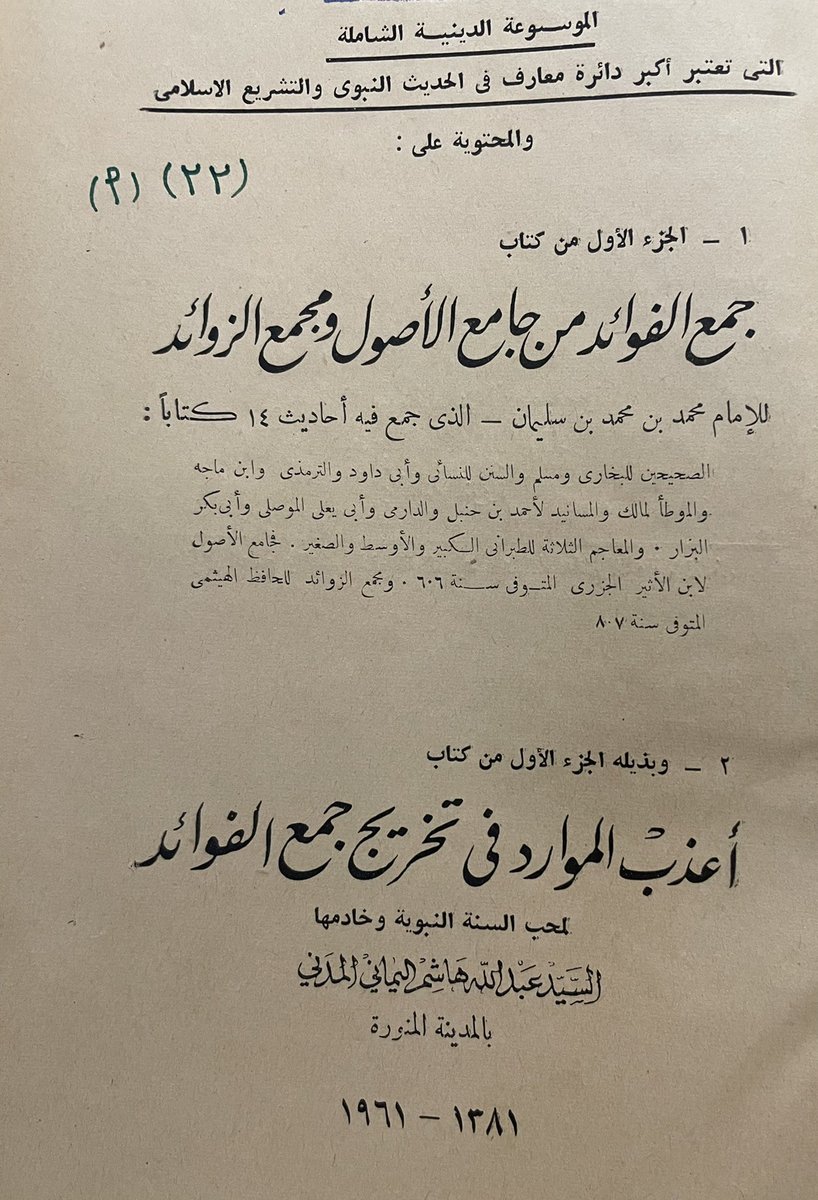 الموسوعة الدينية الشاملة
التى تعتبر أكبر دائرة معارف فى الحديث النبوى والتشريع الاسلامى
والمحتوية على :
(٢٢) (٩)
١ – الجزء الأول من كتاب
جمع الفوائد من جامع الأصول ومجمع الزوائد
للإمام محمد بن محمد بن سليمان – الذى جمع فيه أحاديث ١٤ كتاباً :
الصحيحين للبخارى ومسلم والسنن للنسائى وأبى داود والترمذى وابن ماجه
والموطأ لمالك والمسانيد لأحمد بن حنبل والدارمى وأبى يعلى الموصلى وأبى بكر
البزار . والمعاجم الثلاثة للطبرانى الكبير والأوسط والصغير . فجامع الأصول
لابن الأثير الجزرى المتوفى سنة ٦٠٦ . ومجمع الزوائد للحافظ الهيثمى
المتوفى سنة ٨٠٧
٢ – وبذيله الجزء الأول من كتاب
أعذب الموارد فى تخريج جمع الفوائد
لمحب السنة النبوية وخادمها
السَيّد عَبْد اللّه هَاشِمْ اليَمَاني المَدَني
بالمدينة المنورة
١٣٨١ – ١٩٦١